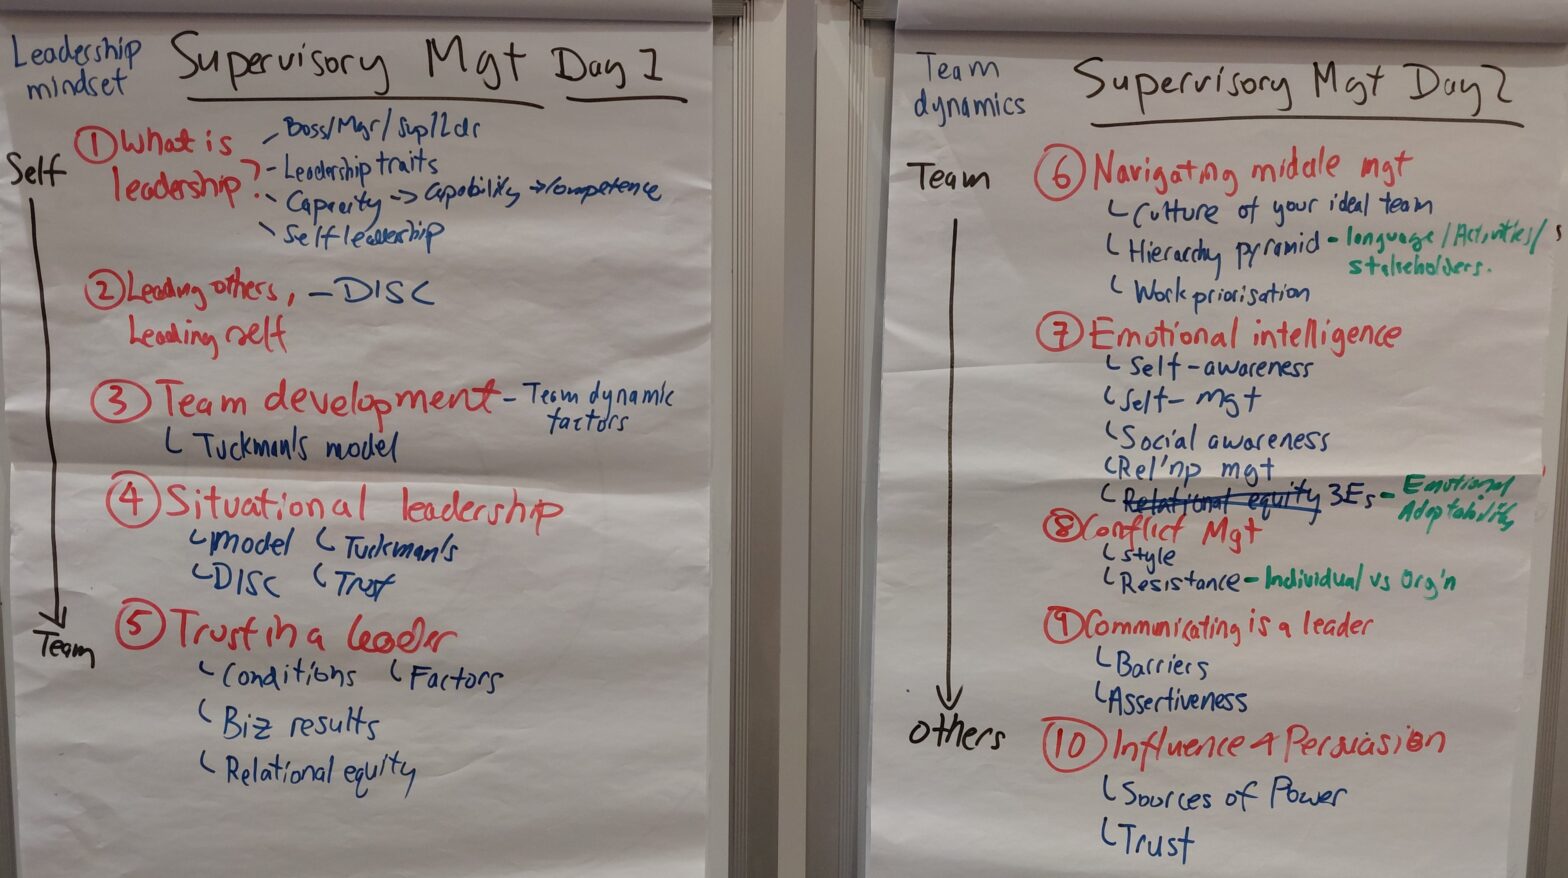 Leadership
mindset
Supervisory Mgt Day 1
① What is
leadership?
- Boss/Mgr/Sup/Ldr
- Leadership traits
- Capacity -> Capability -> Competence
- Self leadership
Self
② Leading others, - DISC
Leading self
③ Team development - Team dynamic
factors
Tuckman's model
④ Situational leadership
Model Tuckman's
DISC Trust
Team
⑤ Trust in a leader
Conditions Factors
Biz results
Relational equity
Team
dynamics
Supervisory Mgt Day 2
Team
⑥ Navigating middle mgt
Culture of your ideal team
Hierarchy pyramid - language/Activities/
stakeholders.
Work priorisation
⑦ Emotional intelligence
Self-awareness
Self-Mgt
Social awareness
Rel'np mgt
Relational equity 3Es - Emotional
Adaptability
⑧ Conflict Mgt
Style
Resistance - Individual vs Org'n
⑨ Communicating is a leader
Barriers
Assertiveness
Others
⑩ Influence & Persuasion
Sources of Power
Trust